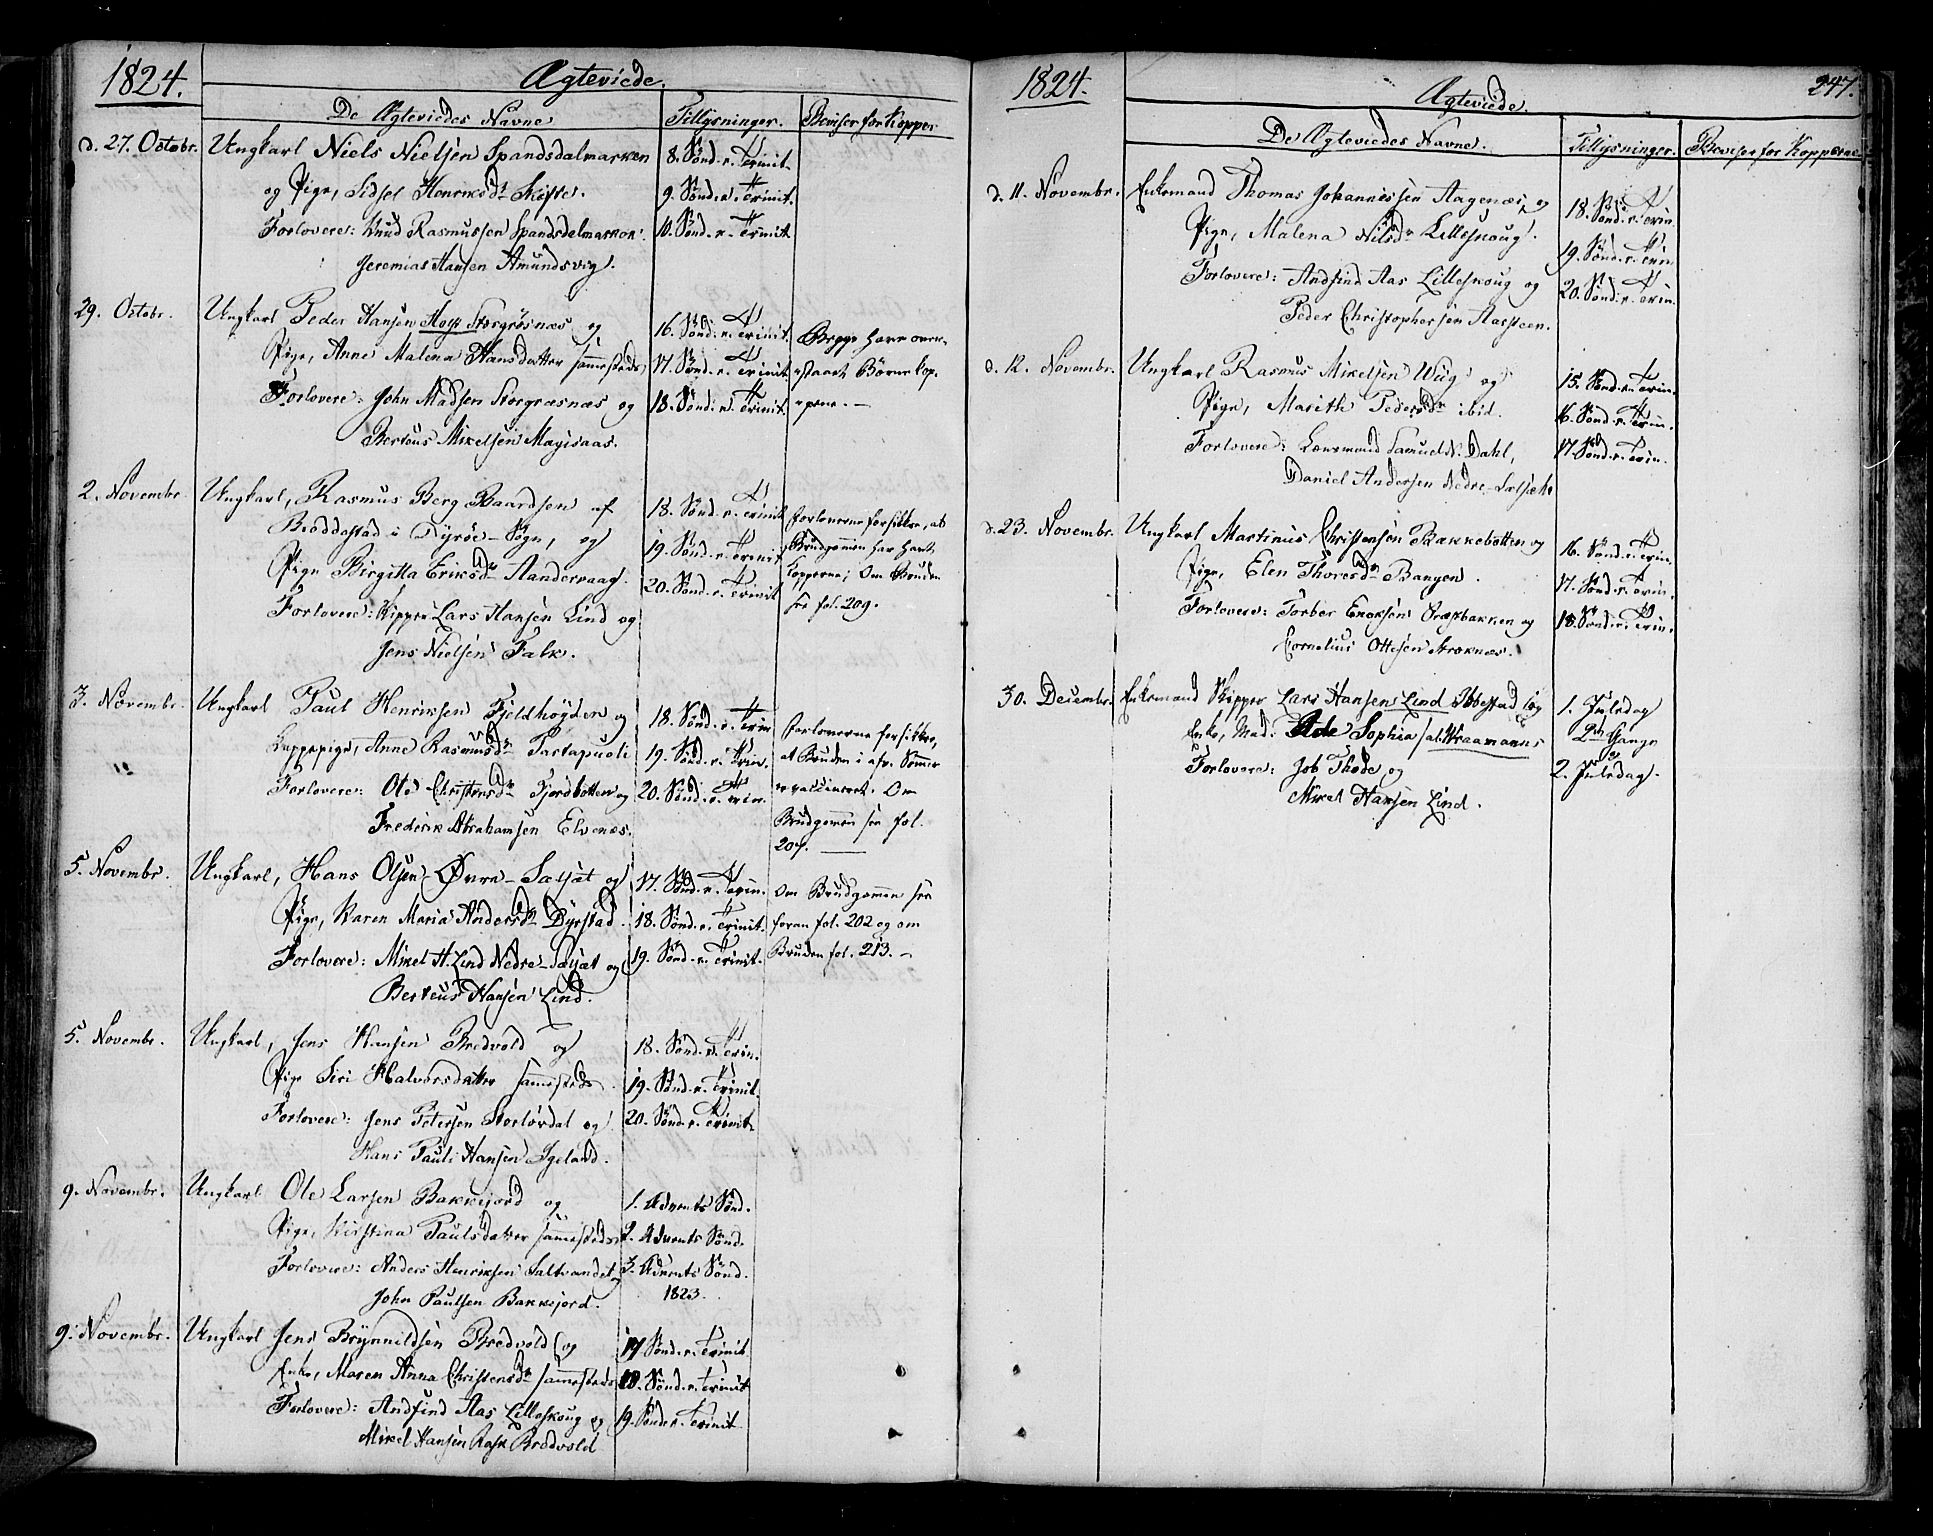 1824.
Ægteviede.
De Ægteviedes Navne
Tillysninger.
Beviser for Kopper
d. 27. Octobr.
Ungkarl Niels Nielsen Spandsdalmarken
og Pige, Sidsel Henriksdr
Forlovere: Knud Rasmussen Spandsdelmarken
Jeremias Hansen Amundsvig.
8. Sönd. e. Trinit.
9. Sönd. e. Trinit.
10. Sönd. e. Trinit.
29. Octobr.
Ungkarl Peder Hansen Storgrøsnæs og
Pige, Anne Malena Hansdatter sammesteds
Forlovere: John Madsen Storgræsnæs og
Berteus Mikelsen
16. Sönd: e. Trinit.
17. Sönd. e. Trinit.
18. Sönd: e. Trinit.
Begge have over-
staaet Börnekop-
perne. —
2. Novembr.
Ungkarl, Rasmus Berg Baardsen af
Bröddestad i Dyröe-Sogn, og
Pige Birgitta Eriksdr Sandervaag.
Forlovere: Skipper Lars Hansen Lind og
Jens Nielsen Falk.
18. Sönd. e. Trinit
19. Sönd. e. Trinit
20. Sönd. e. Trinit
Forloverne forsikkre, at
Brudgommen har havt
Kopperne; Om Bruden
see fol. 209.
3. Novembr.
Ungkarl Paul Henriksen Fjeldhøyden og
Lappepige, Anne Rasmusdr
Forlovere: Ole Christensdr Fjordbotten og
Frederik Abrahamsen Elvenæs.
18. Sönd. e. Trin
19. Sönd. e. Trin.
20. Sönd. e. Trin.
Forloverne forsikkre,
at Bruden i afv. Sommer
er vaccineret. Om
Brudgommen see fol.
207. —
5. Novembr.
Ungkarl, Hans Olsen Øvre-Sælsæt og
Pige, Karen Maria Andersdr Dyrstad.
Forlovere: Mikel H. Lind Nedre-Sælsæt og
Berteus Hansen Lind.
17. Sönd. e. Trin.
18. Sönd. e. Trinit.
19. Sönd. e. Trinit.
Om Brudgommen see
foran fol. 202 og om
Bruden fol. 213. —
5. Novembr.
Ungkarl, Jens Hansen Bredvold og
Pige Siri Halvorsdatter sammesteds.
Forlovere: Jens Petersen og
Hans Pauli Hansen Igeland.
18. Sönd. e. Trin.
19. Sönd. e. Trinit.
20. Sönd. e. Trinit.
9. Novembr.
Ungkarl Ole Larsen Bakkejord og
Pige, Kirstina Paulsdatter sammesteds
Forlovere: Anders Henriksen Saltvandet
John Paulsen Bakkejord.
1. Advents Sönd.
2. Advents Sönd.
3. Advents Sönd.
1823.
9. Novembr.
Ungkarl Jens Brynnildsen Bredvold og
Enke, Maren Anna Christensdr sammesteds
Forlovere: Andfind Aas Lilleskoug og
Mikel Hansen Rask Bredvold
17 Sönd. e. Trinit
18. Sönd. e. Trinit
19. Sönd. e. Trinit
1824.
Ægteviede.
247.
De Ægteviedes Navne.
Tillysninger.
Beviser for Kopperne
d. 11. Novembr.
Enkemand Thomas Johannessen Aagenæs og
Pige, Malena Nilsdr Lilleskoug.
Forlovere: Andfind Aas Lilleskoug og
Peder Christophersen Aarsteen.
18. Sönd. e. Trin.
19. Sönd. e. Trin
20. Sönd. e. Trin.
d. 12. Novembr.
Ungkarl Rasmus Mikelsen Wiig og
Pige, Marith Pedersdr ibid.
Forlovere: Lensmand Samuel N. Dahl,
Daniel Andersen Nedre-Sælsæt
15. Sönd. e. Trin.
16. Sönd. e. Trin.
17. Sönd. e. Trin.
d. 23. Novembr.
Ungkarl Martinus Christensen Bakkebotten og
Pige, Elen Thoresdr Bangen.
Forlovere: Torber Enoksen og
Cornelius Ottesen
16. Sönd. e. Trin.
17. Sönd. e. Trin.
18. Sönd. e. Trin.
30. Decembr.
Enkemand Skipper Lars Hansen Lind Ibbestad og
Enke, Mad: Sophia sal. Kraamanns
Forlovere: Job Thode og
Mikel Hansen Lind.
1. Juledag
2de Gange
og
2. Juledag.